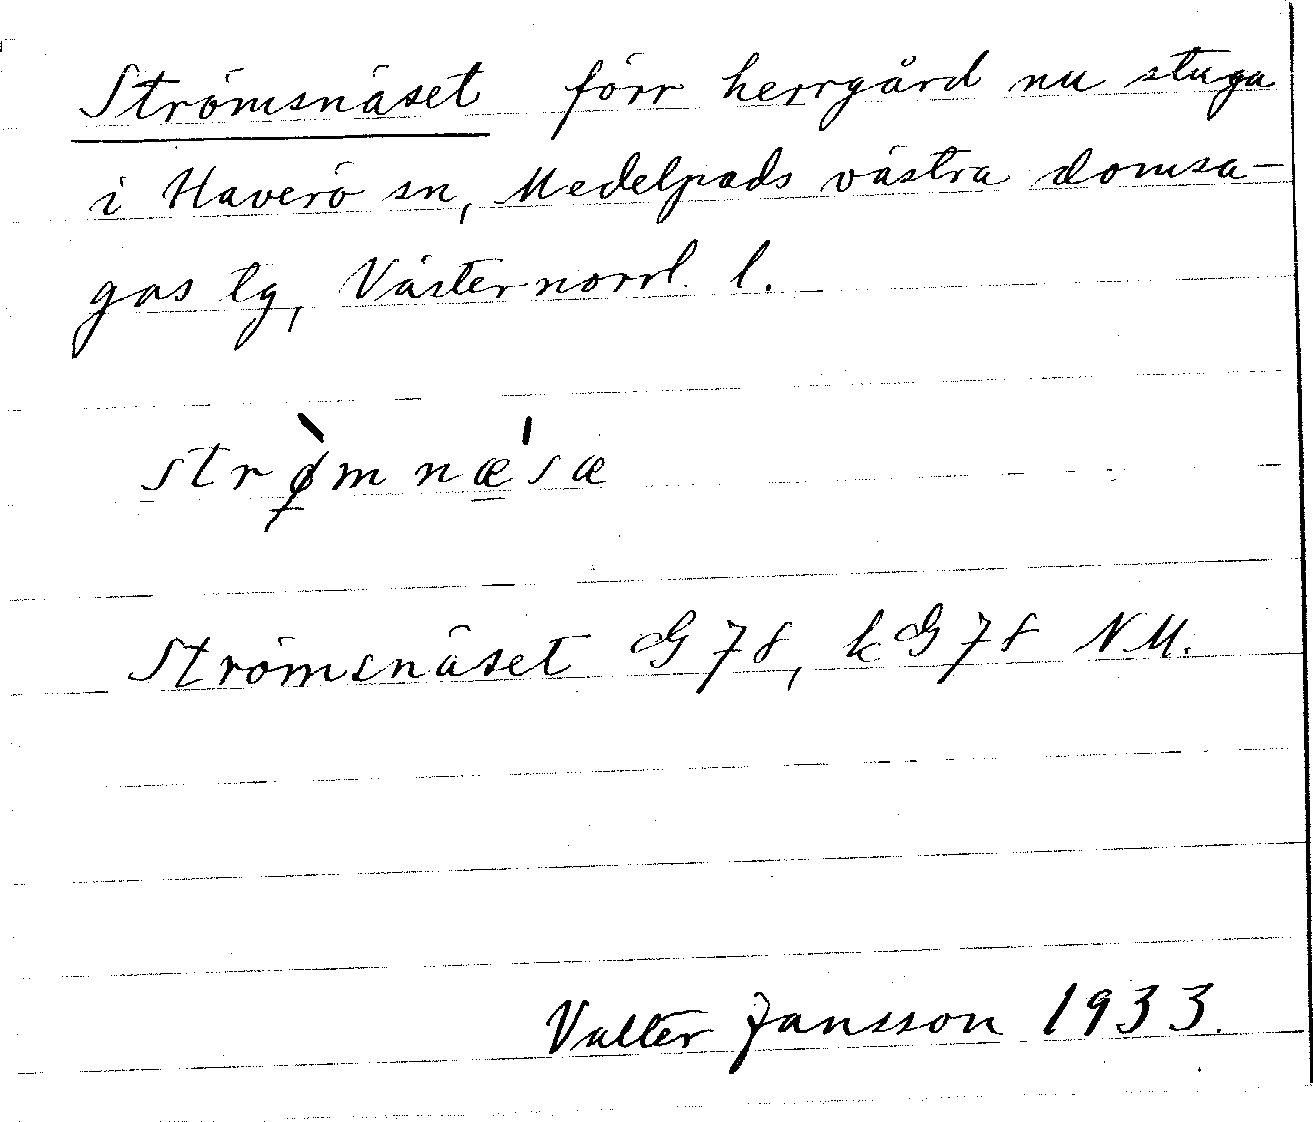 Strömsnäset förr herrgård nu stuga
i Haverö sn, Medelpads västra domsa-
gas tg, Västernorrl. l.
strø̀mnæ'sæ
Strömsnäset G 78, kG 78 NM.
Valter Jansson 1933.